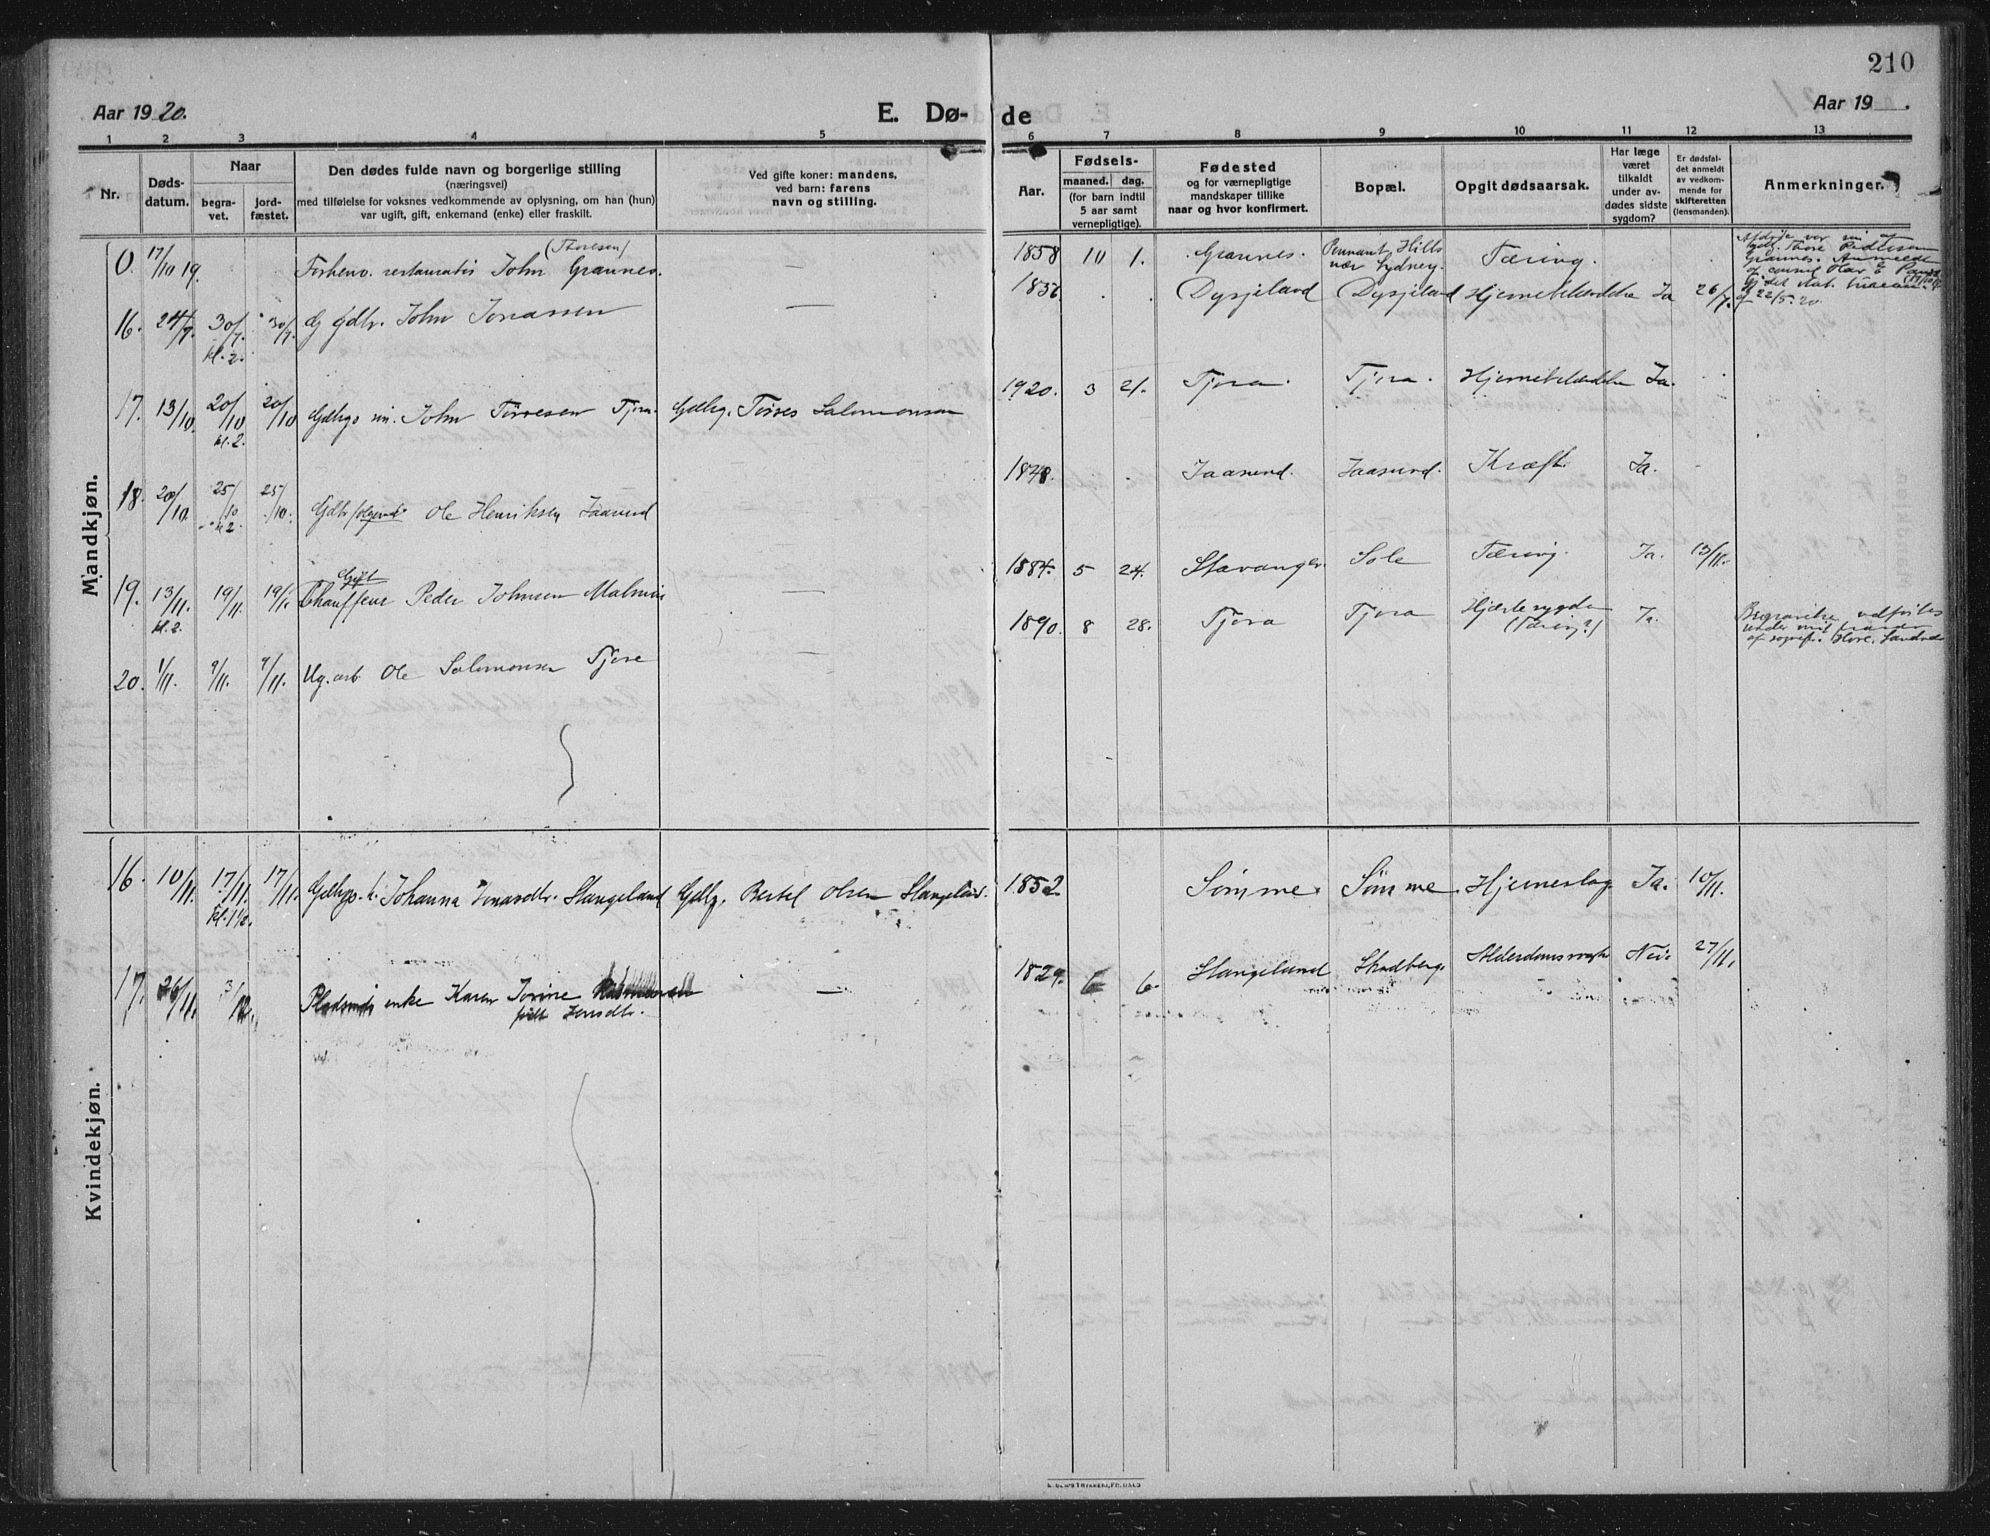 210
Aar 1920.
E. Dø- de
Aar 19 .
1 2 3 4 5 6 7 8 9 10 11 12 13
Nr.
Døds-
datum.
Naar
begra-
vet.
jord-
fæstet.
Den dødes fulde navn og borgerlige stilling
(næringsvei)
med tilføielse for voksnes vedkommende av oplysning, om han (hun)
var ugift, gift, enkemand (enke) eller fraskilt.
Ved gifte koner: mandens,
ved barn: farens
navn og stilling.
Aar.
Fødsels-
maaned. dag.
(for barn indtil
5 aar samt
vernepligtige).
Fødested
og for værnepligtige
mandskaper tillike
naar og hvor konfirmert.
Bopæl.
Opgit dødsaarsak.
Har læge
været
tilkaldt
under av-
dødes sidste
sygdom?
Er dødsfal-
det anmeldt
av vedkom-
mende for
skifteretten
(lensmanden).
Anmerkninger.
Mandkjøn.
0. 17/10 19. Forhenv. restauratis John (Thoresen) Grannes. — 1858 10 1. Grannes. Pennant Hills nær Sydney. Tæring.
16. 24/7 30/7 kl. 2. 30/7. Gdbr. John Jonassen — 1836 . . Dysjeland Dysjeland Hjernebelændelse Ja 26/7.
17. 13/10. 20/10 kl. 2. 20/10 Gdbgs John Torresen Tjora. Gdbg. Torres Salomonsen 1920. 3 21. Tjora. Tjora. Ja.
18. 20/10 25/10 kl. 2. 25/10. Gdbr Ole Henriksen Jaasund 1848. . . Jaasund. Jaasund. Kræft. Ja.
19. 13/11. kl. 2. 19/11. 19/11. Gift Chauffeur Peder Johnsen Malmin — 1884. 5 24. Stavanger. Sole Tæring. Ja. 13/11.
20. 1/11. 9/11. 9/11. Ug. arb. Ole Salomonsen Tjora 1890. 8 28. Tjora Tjora Hjertesygdom (Tæring?) Ja.
Kvindekjøn.
16. 10/11. 17/11. kl. 1½. 17/11. Johanna Jonasdtr. Stangeland Gdbg. Bertel Olsen Stangeland. 1852. Sømme. Sømme Hjerneslag Ja. 10/11.
17. 26/11. 3/12. enke Karen Jorine — 1829. 6 6. Stangeland Skadberg. Nei. 27/11.
født Jensdtr.